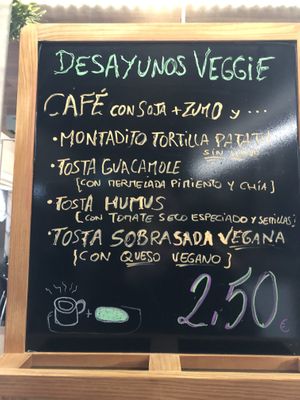 DESAYUNOS VEGGIE
CAFÉ CON SOJA + ZUMO y ...
• MONTADITO TORTILLA PATATA
SIN HUEVO
• TOSTA GUACAMOLE
[CON MERMELADA PIMIENTO Y CHÍA]
• TOSTA HUMUS
[CON TOMATE SECO ESPECIADO Y SEMILLAS]
• TOSTA SOBRASADA VEGANA
[CON QUESO VEGANO]
+
2,50€